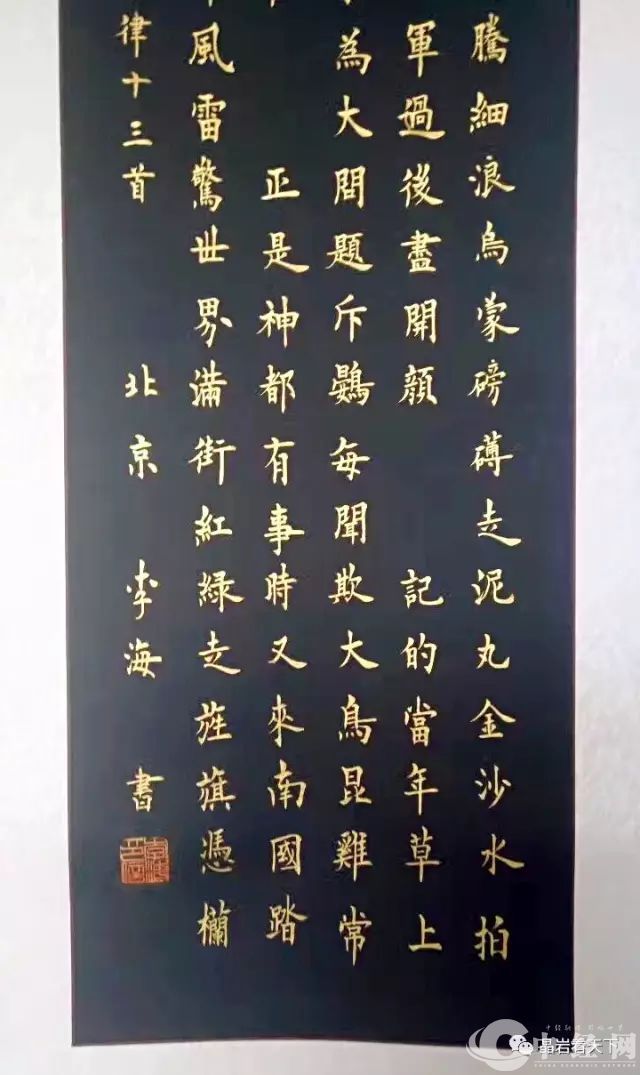 騰細浪烏蒙磅礴走泥丸金沙水拍
軍過後盡開顏 記的當年草上
為大問題斥鷃每聞欺大鳥昆雞常
正是神都有事時又來南國踏
風雷驚世界滿街紅綠走旌旗憑欄
律十三首 北京 李海 書
晶岩看天下
中经网